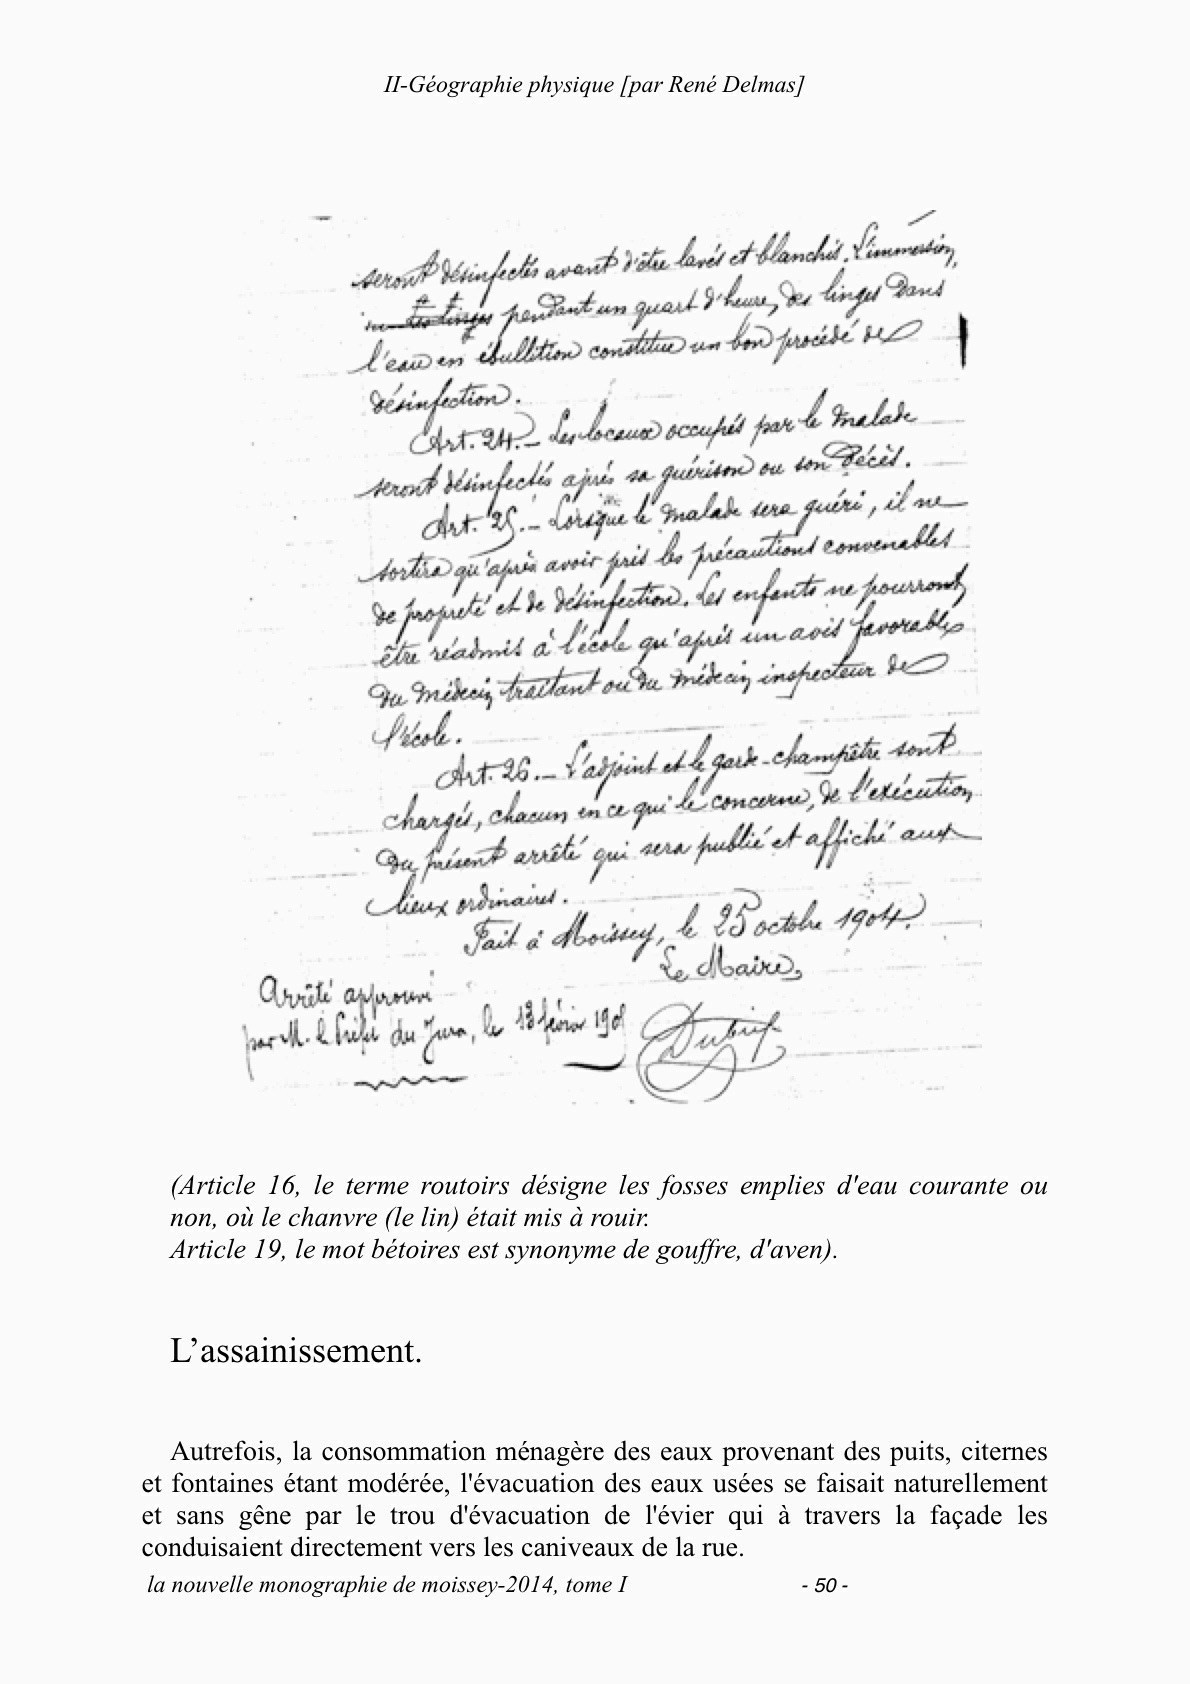 II-Géographie physique [par René Delmas]
seront désinfectés avant d'être lavés et blanchis. L'immersion,
pendant un quart d'heure, des linges dans
l'eau en ébullition constitue un bon procédé de
désinfection.
Art. 24. - Les locaux occupés par le malade
seront désinfectés après sa guérison ou son décès.
Art. 25. - Lorsque le malade sera guéri, il ne
sortira qu'après avoir pris les précautions convenables
de propreté et de désinfection. Les enfants ne pourront
être réadmis à l'école qu'après un avis favorable
du médecin traitant ou du médecin inspecteur de
l'école.
Art. 26. - L'adjoint et le garde-champêtre sont
chargés, chacun en ce qui le concerne, de l'exécution
du présent arrêté qui sera publié et affiché aux
lieux ordinaires.
Fait à Moissey, le 25 octobre 1904.
Le Maire,
Arrêté approuvé
par M. le Préfet du Jura, le 13 février
(Article 16, le terme routoirs désigne les fosses emplies d'eau courante ou
non, où le chanvre (le lin) était mis à rouir.
Article 19, le mot bétoires est synonyme de gouffre, d'aven).
L’assainissement.
Autrefois, la consommation ménagère des eaux provenant des puits, citernes
et fontaines étant modérée, l'évacuation des eaux usées se faisait naturellement
et sans gêne par le trou d'évacuation de l'évier qui à travers la façade les
conduisaient directement vers les caniveaux de la rue.
la nouvelle monographie de moissey-2014, tome I - 50 -